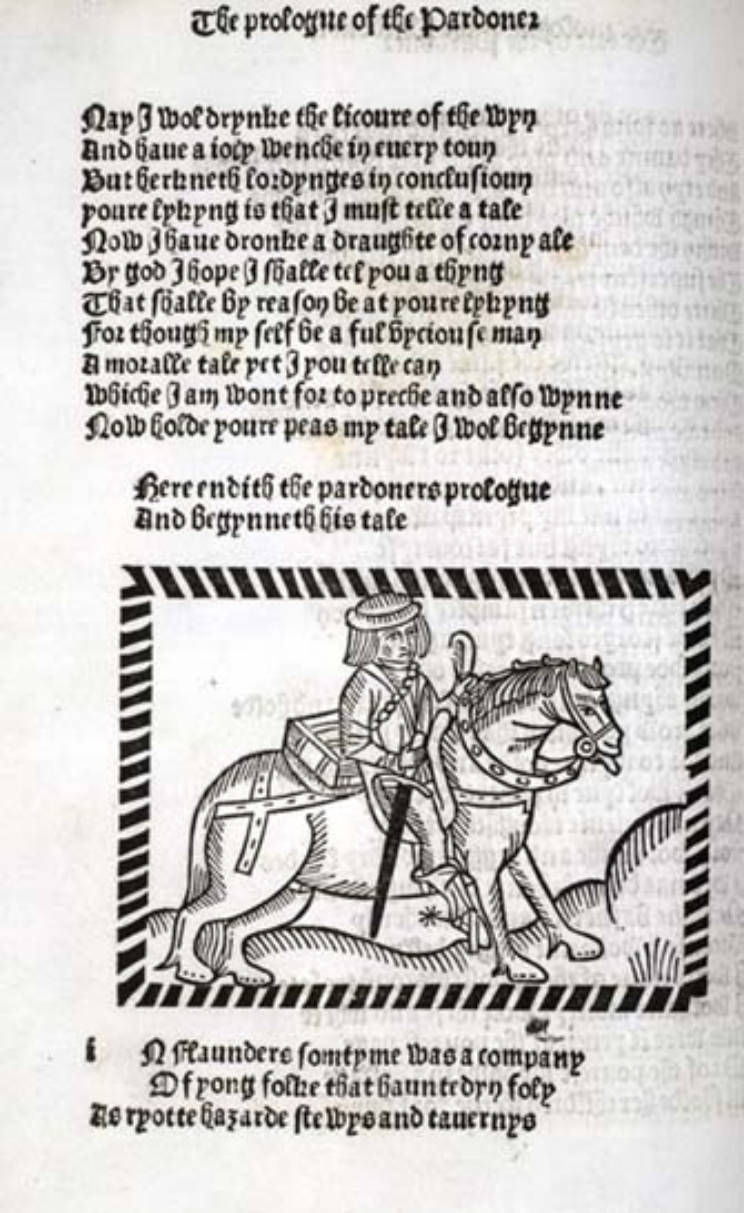 The prologue of the Pardoner
Nay I wol drynke the licoure of the wyn
And haue a ioly wenche in euery toun
But herkneth lordynges in conclusioun
youre lykyng is that I must telle a tale
Now I haue dronke a draughte of corny ale
By god I hope I shalle tel you a thyng
That shalle by reason be at youre lykyng
For though my self be a ful vyciouse man
A moralle tale yet I you telle can
Whiche I am wont for to preche and also wynne
Now holde youre peas my tale I wol begynne
Here endith the pardoners prologue
And begynneth his tale
i N Flaunders somtyme was a company
Of yong folke that hauntedyn foly
As ryotte hazarde stewys and tauernys